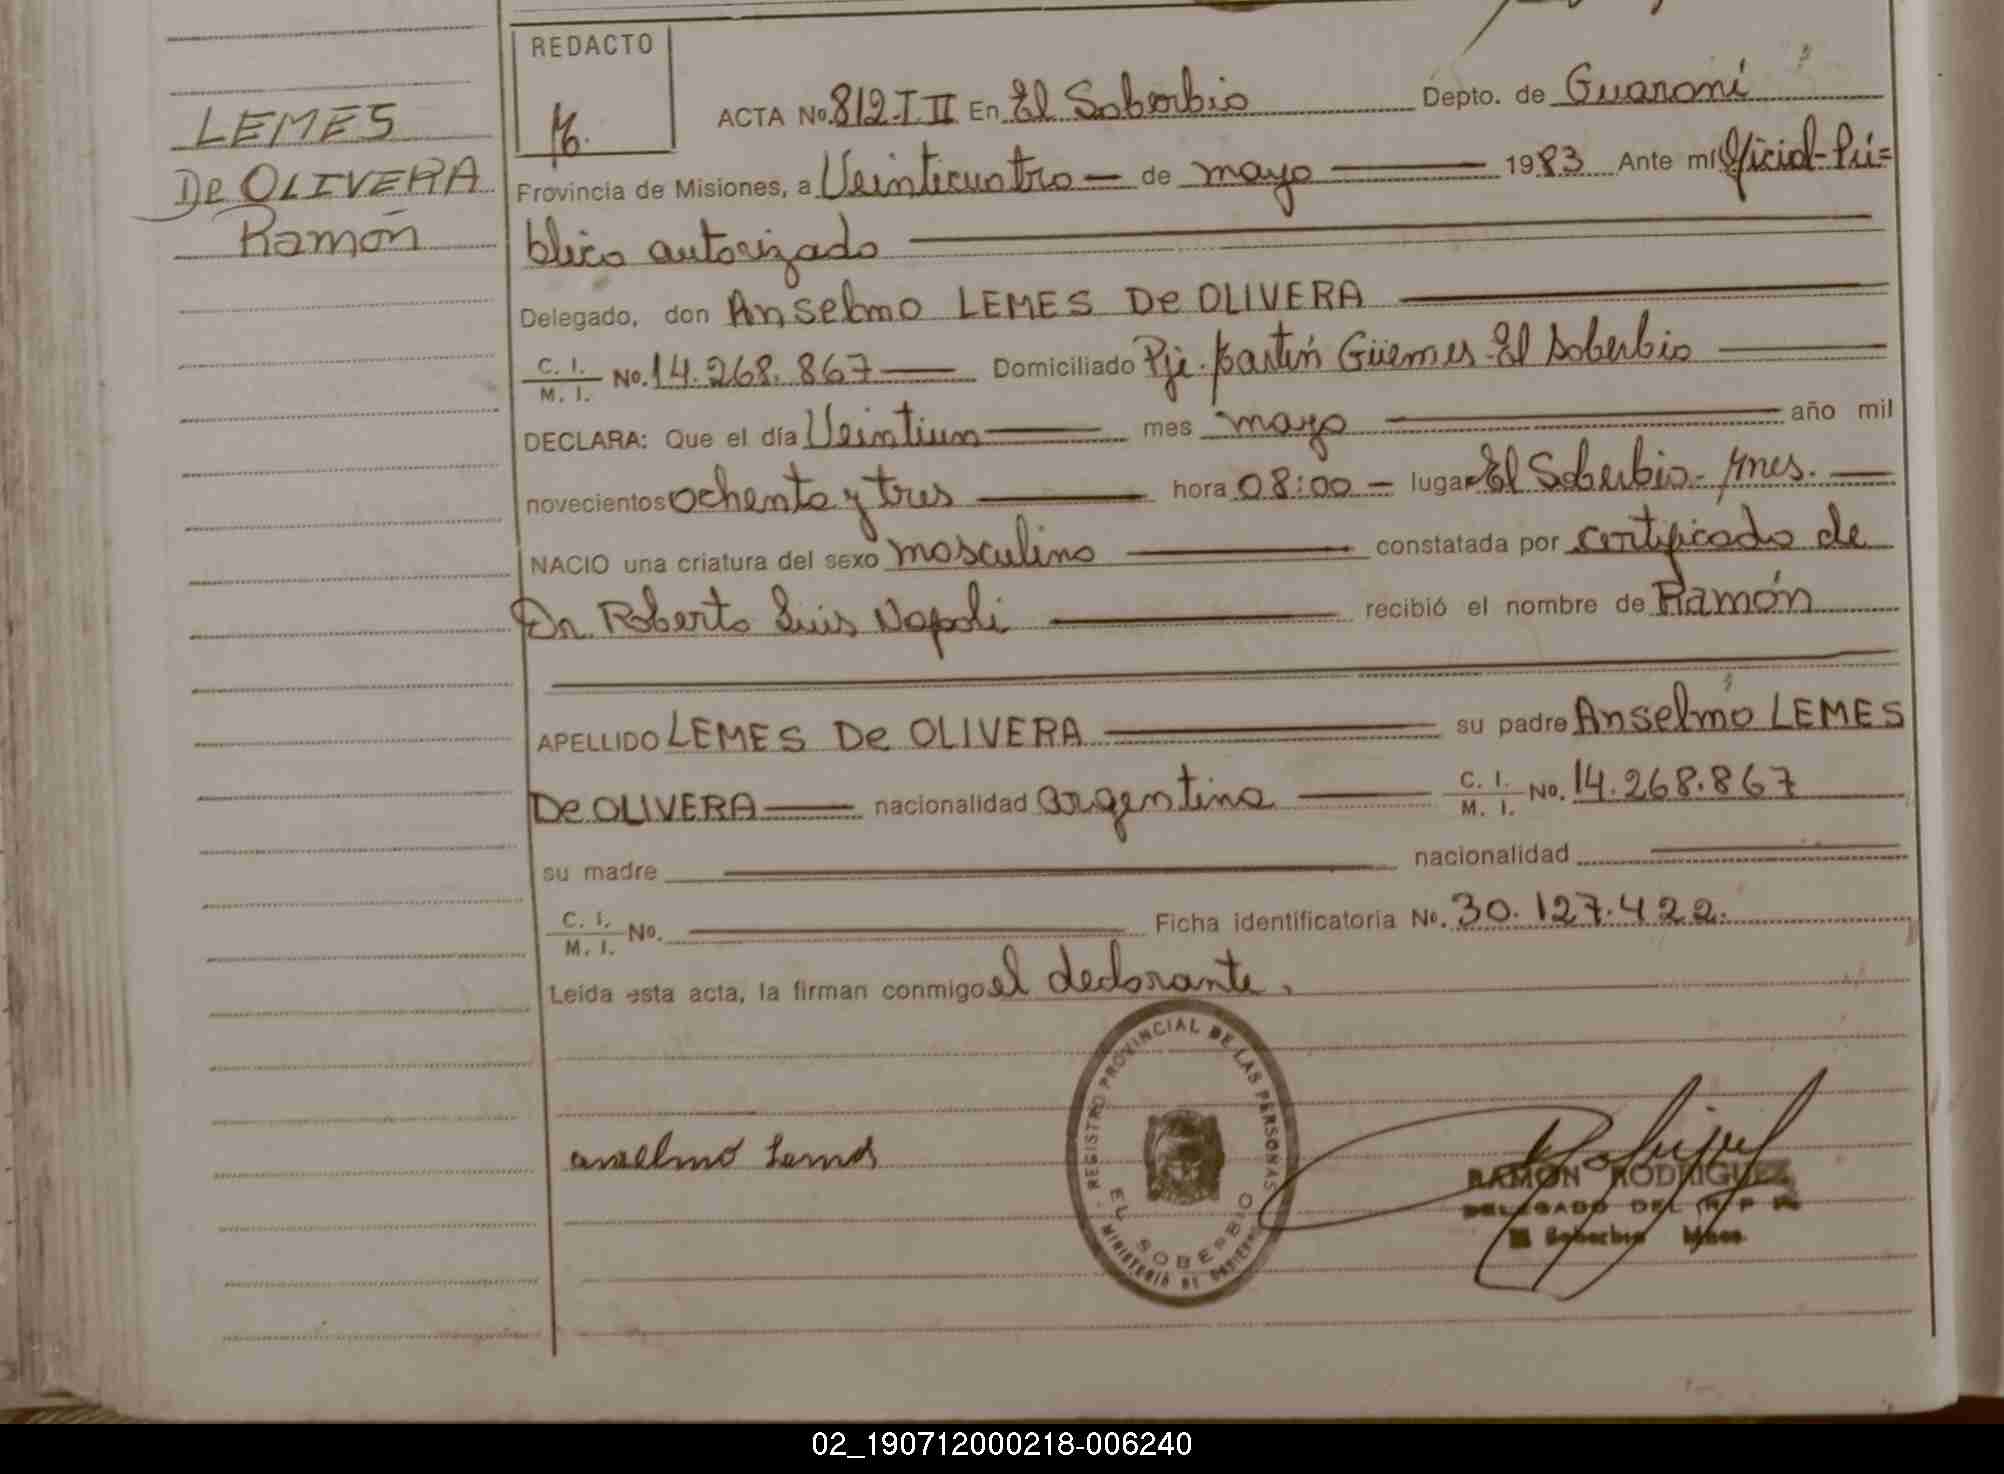 LEMES
De OLIVERA
Ramón
REDACTO
ACTA No. 812-T II En El Soberbio Depto. de Guaraní
Provincia de Misiones, a Veinticuatro — de mayo — 1983 Ante mí Oficial Pú=
blico autorizado
Delegado, don Anselmo LEMES De OLIVERA
C. I. / M. I. No. 14.268.867 — Domiciliado Pje. Martín Güemes-El Soberbio
DECLARA: Que el día Veintiun — mes mayo — año mil
novecientos ochenta y tres — hora 08:00 — lugar El Soberbio- Mnes. —
NACIO una criatura del sexo masculino — constatada por certificado de
Dr. Roberto Luis Napoli — recibió el nombre de Ramón
APELLIDO LEMES De OLIVERA — su padre Anselmo LEMES
De OLIVERA — nacionalidad argentina — C. I. / M. I. No. 14.268.867
su madre — nacionalidad —
C. I. / M. I. No. — Ficha identificatoria No. 30.127.422.
Leída esta acta, la firman conmigo el declarante.
REGISTRO PROVINCIAL DE LAS PERSONAS
EL SOBERBIO
MINISTERIO DE GOBIERNO
anselmo Lemes
RAMON RODRIGUEZ
DELEGADO DEL R P P
El Soberbio Mnes.
02_190712000218-006240